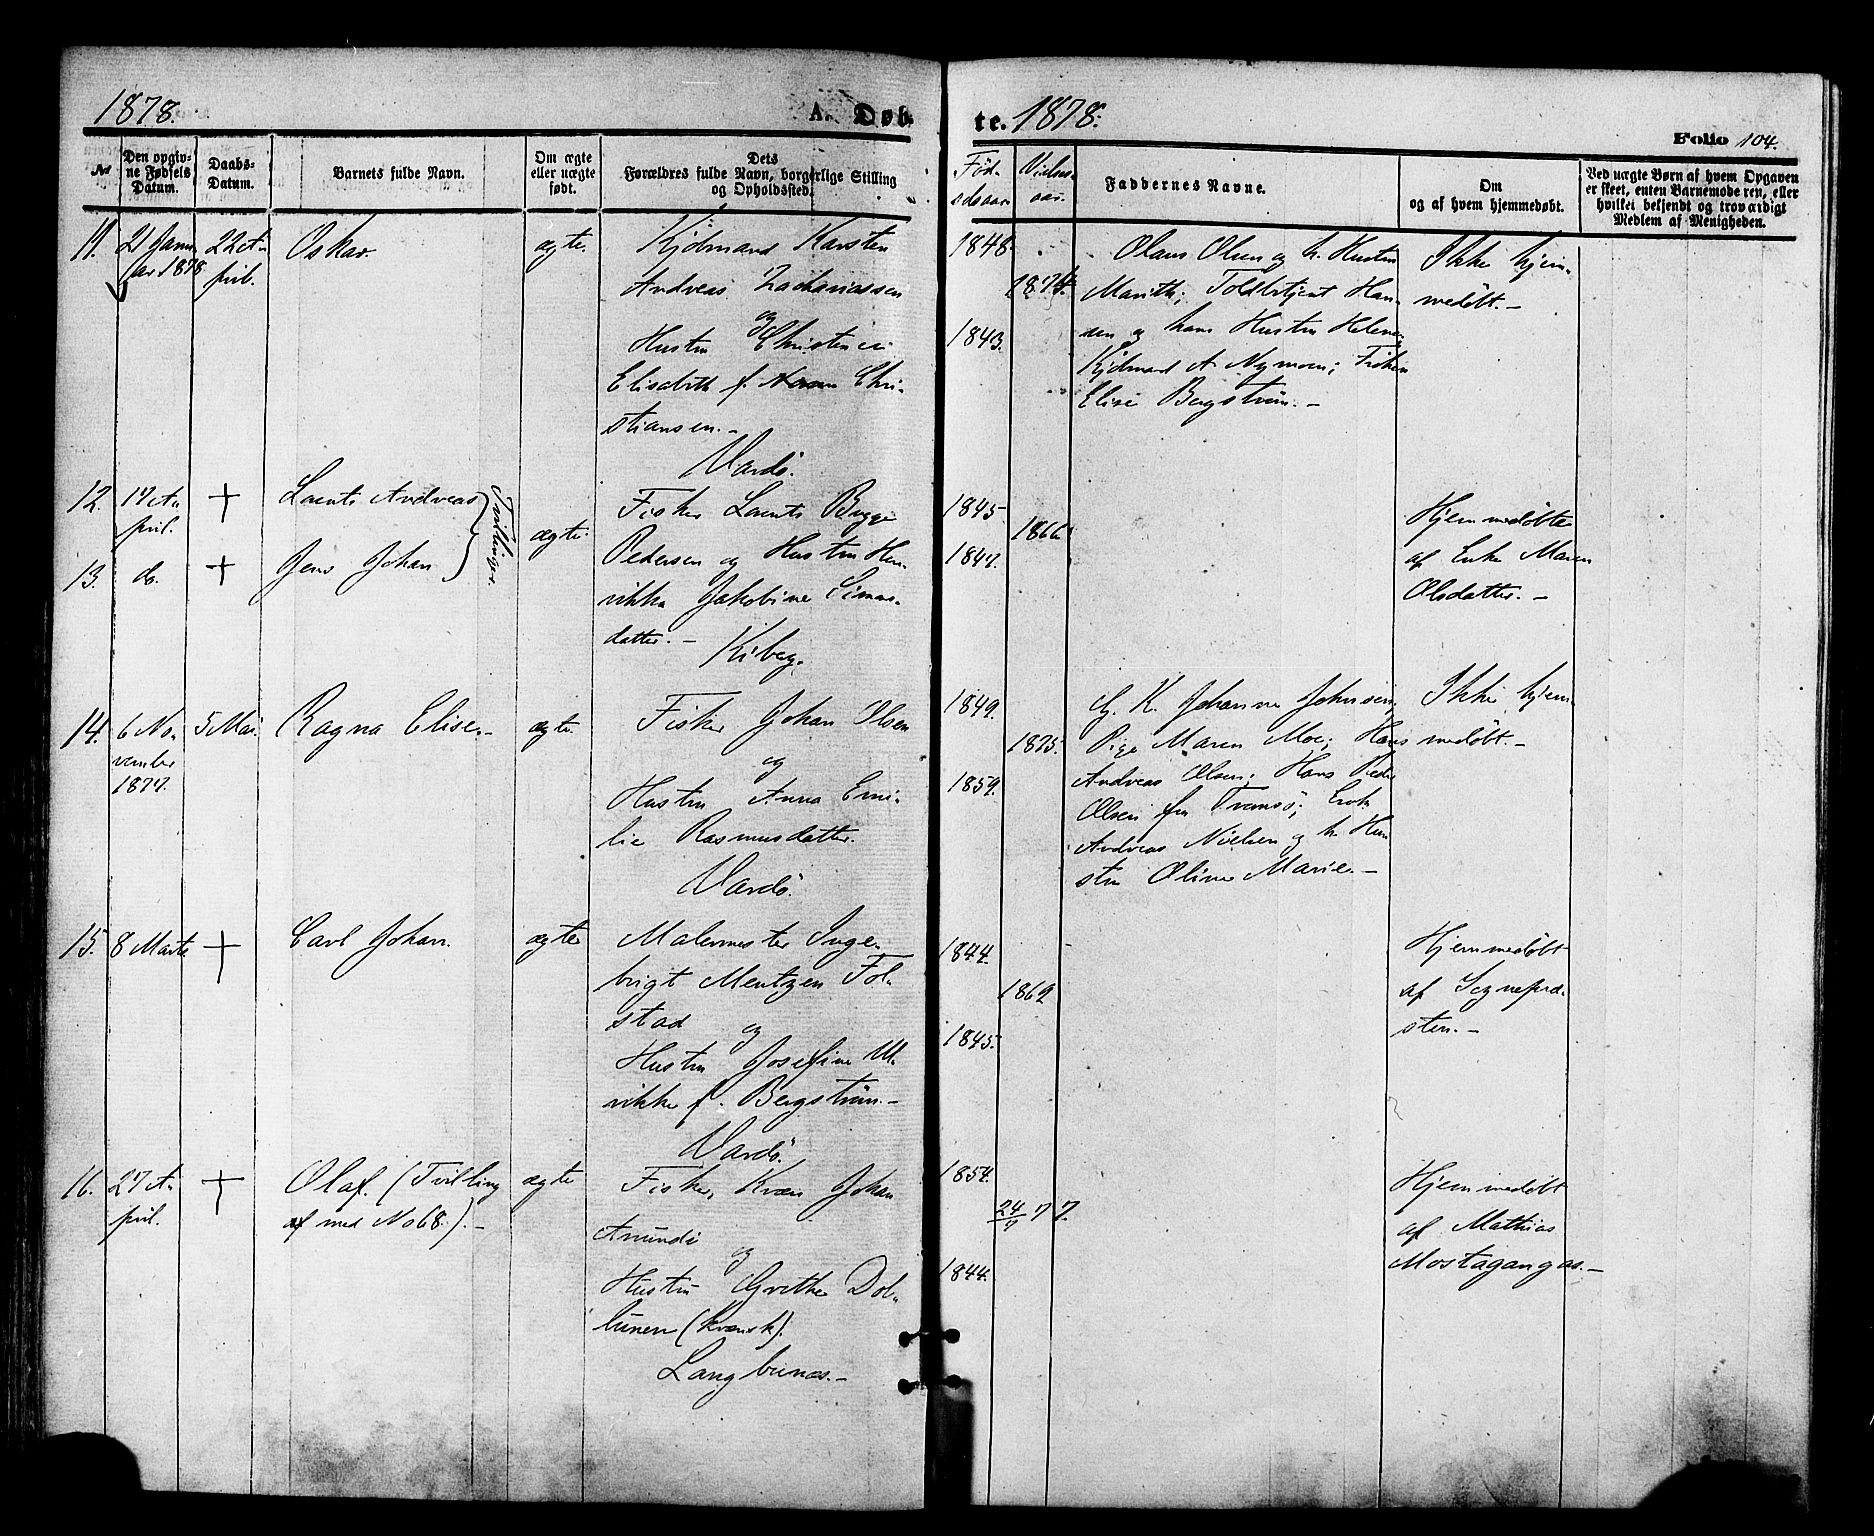 1878.
A. Døb
te. 1878.
Folio 104.
№
Den opgiv-
ne Fødsels
Datum.
Daabs-
Datum.
Barnets fulde Navn.
Om ægte
eller uægte
født.
Dets
Forældres fulde Navn, borgerlige Stilling
og Opholdssted.
Fød-
selsaar
Vielses-
aar.
Faddernes Navne.
Om
og af hvem hjemmedøbt.
Ved uægte Børn af hvem Opgaven
er skeet, enten Barnemoderen, eller
hvilket bekjendt og troværdigt
Medlem af Menigheden.
11.
Janu-
ar 1878
22 A-
pril.
Oskar.
ægte.
Kjøbmand Karsten
Andreas Zachariassen
og
Hustru Christence
Elisabeth f. Chri-
stiansen.-
Vardö.
1848.
1874.
1843.
Olaus Olsen og h. Hustru
Marith; Toldbetjent Han-
sen og hans Hustru Helene;
Kjöbmand A. Nymoen; Frøken
Elise Bergström.-
Ikke hjem-
medøbt.-
12.
17 A-
pril.
+
Laurits Andreas
Tvillinger
13.
do.
+
Jens Johan
ægte.
Fisker Laurits Bugge
Pedersen og Hustru Hen-
rikke Jakobine Simons-
datter.-
Kiberg.
1845.
1866.
1847.
Hjemmedøbte
af Enke Maren
Olsdatter.-
14.
6 No-
vember
1877.
5 Mai.
Ragna Elise.-
ægte.
Fisker Johan Olsen
og
Hustru Anna Emi-
lie Rasmusdatter.
Vardö.
1849.
1875.
1859.
G. K. Johanne Johnsen;
Pige Maren Moe; Hans
Andreas Olsen; Hans Peder
Olsen fra Tromsö; Enok
Andreas Nielsen og h. Hu-
stru Oline Marie.-
Ikke hjem-
medøbt.-
15.
8 Marts
+
Carl Johan.
ægte
Malermester Inge-
brigt Mentzen Fol-
stad og
Hustru Josefine Ul-
rikke f. Bergström.-
Vardö.
1844.
1869
1845.
Hjemmedøbt
af Sognepræ-
sten.-
16.
27 A-
pril.
+
Olaf. (Tvilling
af med No 68.).-
ægte
Fisker, Kvæn Johan
Anundi
og
Hustru Grethe Dol-
lunen (kvænsk).
Langbunes.-
1854.
24/7 77.
1844.
Hjemmedøbt
af Mathias
Mostagangas.-